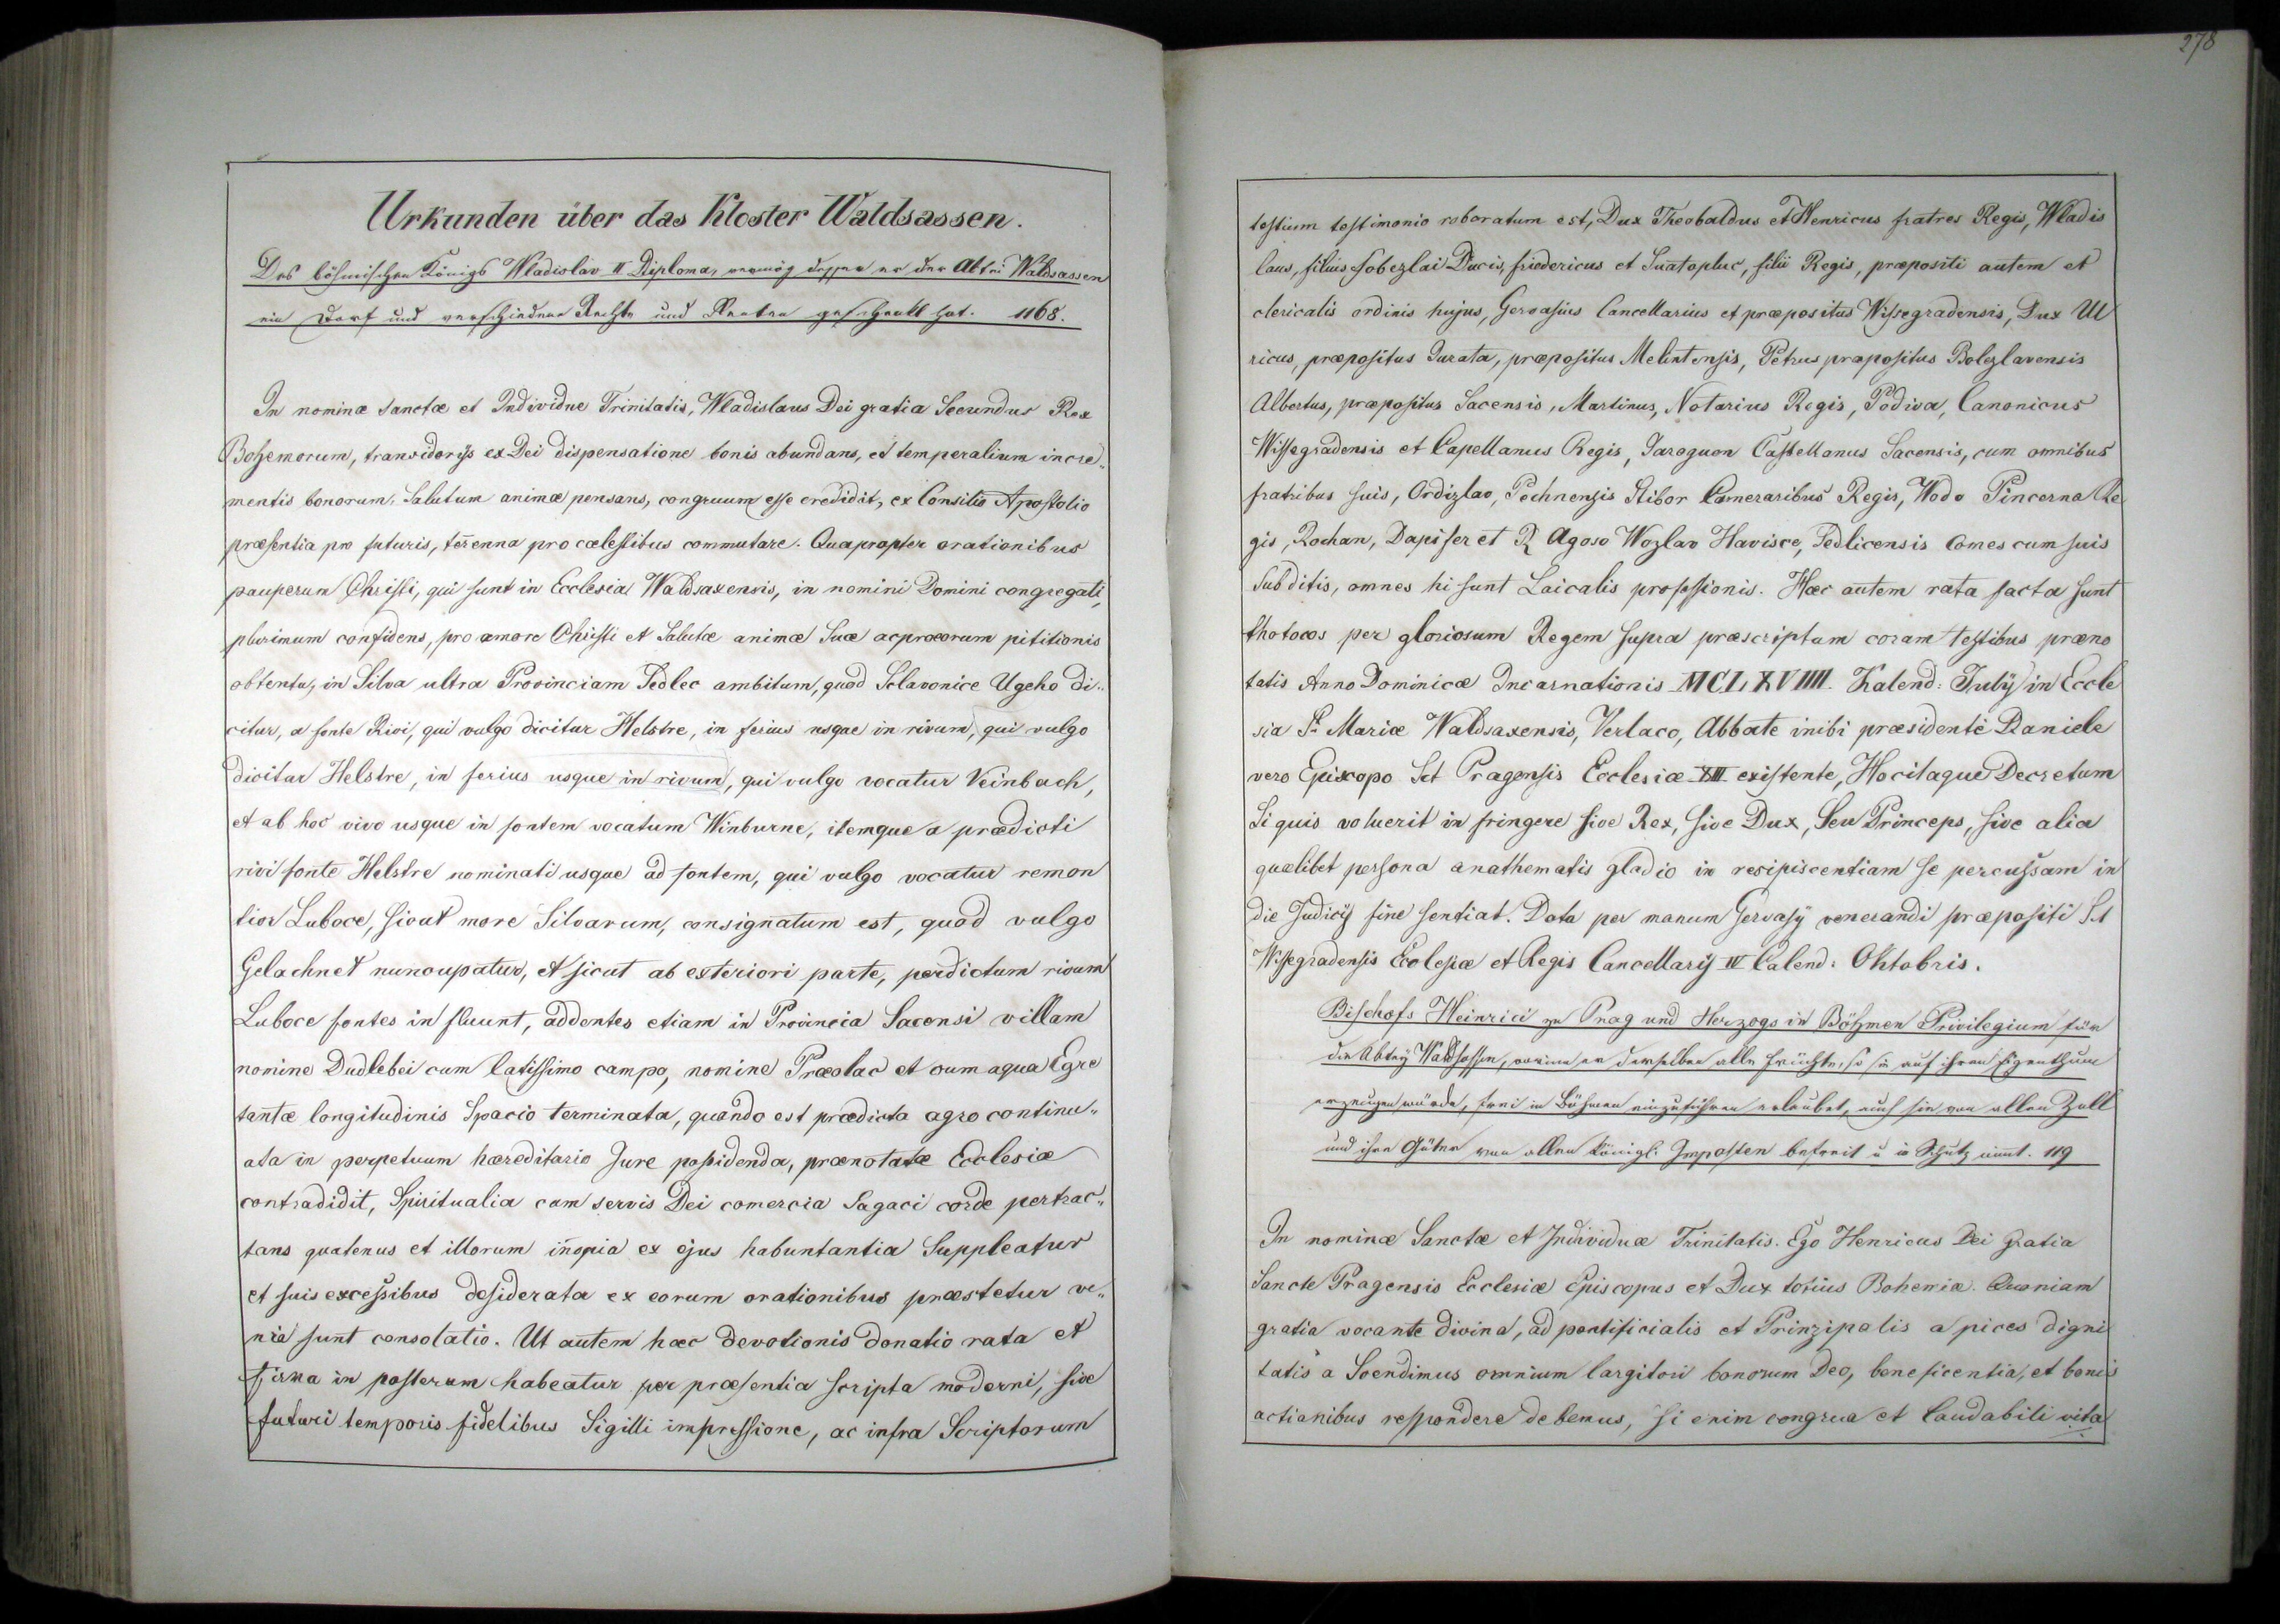 Urkunden über das Kloster Waldsassen.
Des böhmischen Königs Wladislav II Diploma, vermög dessen er der Abtei Waldsassen
ein Dorf und verschiedene Rechte und Renten geschenkt hat. 1168.
In nominæ sanctæ et Individue Trinitatis, Wladislaus Dei gratia Secundus Rex
Bohemorum, transidorijs ex Dei dispensatione bonis abundans, et temperalium incre„
mentis bonorum, Salutum animæ pensans, congruum esse credidit, ex Consilio Apostolio
præsentia pro futuris, terrenna pro cælestibus commutare. Quapropter orationibus
pauperum Christi, qui sunt in Ecclesia Waldsaxensis, in nomini Domini congregati,
plurimum confidens, pro amore Christi et Salutæ animæ Suæ acproeorum pititionis
obtentu, in Silva ultra Provinciam Sedlec ambitum, quod Sclavonice Ugeho di„
citur, a fonte Rivi, qui vulgo dicitur Helstre, in ferius usque in rivum, qui vulgo
dicitar Helstre, in ferius usque in rivum, qui vulgo vocatur Veinbach,
et ab hoc vivo usque in fontem vocatum Winburne, itemque a prædicti
rivi fonte Helstre nominati usque ad fontem, qui vulgo vocatur remon
tior Luboce, sicut more Silvarum, consignatum est, quod vulgo
Gelachnet nuncupatur, et sicut ab exteriori parte, perdictum rivum
Luboce fontes in fluunt, addentes etiam in Provincia Sacensi villam
nomine Dudlebei cum latissimo campo, nomine Præolac et cum aqua Egre
tantæ longitudinis Spacio terminata, quando est prædicta agro continu„
ata in perpetuum hæreditario Jure possidenda, prænotatæ Ecclesiæ
contradidit, Spiritualia cum servis Dei comercia Sagaci corde pertrac„
tans quatenus et illorum inopia ex ejus habuntantia Suppleatur
et suis excessibus desiderata ex eorum orationibus præstetur ve„
nia sunt consolatio. Ut autem hæc devotionis donatio rata et
firma in posterum habeatur per præsentia scripta moderni, sive
futuri temporis fidelibus Sigilli impressione, ac infra Scriptorum
278
testium testimonio roboratum est, Dux Theobaldus et Henricus fratres Regis, Wladis
laus, filius Sobezlai Ducis, friedericus et Suatopluc, filii Regis, præpositi autem et
clericalis ordinis hujus, Gervasius Cancellarius et præpositus Wissegradensis, Dux Ul
ricus, præpositus Jurata, præpositus Melintensis, Petrus præpositus Bolezlavensis
Albertus, præpositus Sacensis, Martinus, Notarius Regis, Podiva, Canonicus
Wissegradensis et Capellanus Regis, Jaroguen Castellanus Sacensis, cum omnibus
fratribus suis, Ordizlao, Pechnensis Stibor Cameraribus Regis, Wodo Pincerna Re
gis, Rochan, Dapifer et R Agoso Wozlav Havisce, Sedlicensis Comes cum suis
Subditis, omnes hi sunt Laicalis professionis. Hæc autem rata facta sunt
thotocos per gloriosum Regem supra præscriptum coram testibus præno
tatis Anno Dominicæ Incarnationis MCLXVIIII. Kalend: Julÿ in Eccle
sia St Mariæ Waldsaxensis, Verlaco, Abbate inibi præsidente Daniele
vero Episcopo Sct Pragensis Ecclesiæ XIII existente, Hocitaque Decretum
Si quis voluerit in fringere sive Rex, sive Dux, Seu Princeps, sive alia
quælibet persona anathematis gladio in resipiscentiam se percussam in
die Judicÿ sine sentiat. Data per manum Gervasÿ venerandi præpositi St
Wissegradensis Ecclesiæ et Regis Cancellarÿ IV Calend: Oktobris.
Bischofs Heinrici zu Prag und Herzogs in Böhmen Privilegium für
die Abtey Waldsassen, worinn er derselben alle Früchte, so sie auf ihrem Eigenthum
erzeugen würde, frei in Böhmen einzuführen erlaubet, auch sie von allen Zoll
und ihre Güter von allen königl: Imposten befreit u in Schutz nimt. 119
In nominæ Sanctæ et Individuæ Trinitatis. Ego Henricus Dei Gratia
Sancte Pragensis Ecclesiæ Episcopus et Dux totius Bohemiæ. Quoniam
gratia vocante divina, ad pontificialis et Prinzipalis apices digni
tatis a Scendimus omnium largitori bonorum Deo, beneficentia, et bonis
actianibus respondere debemus, si enim congrua et laudabili vita